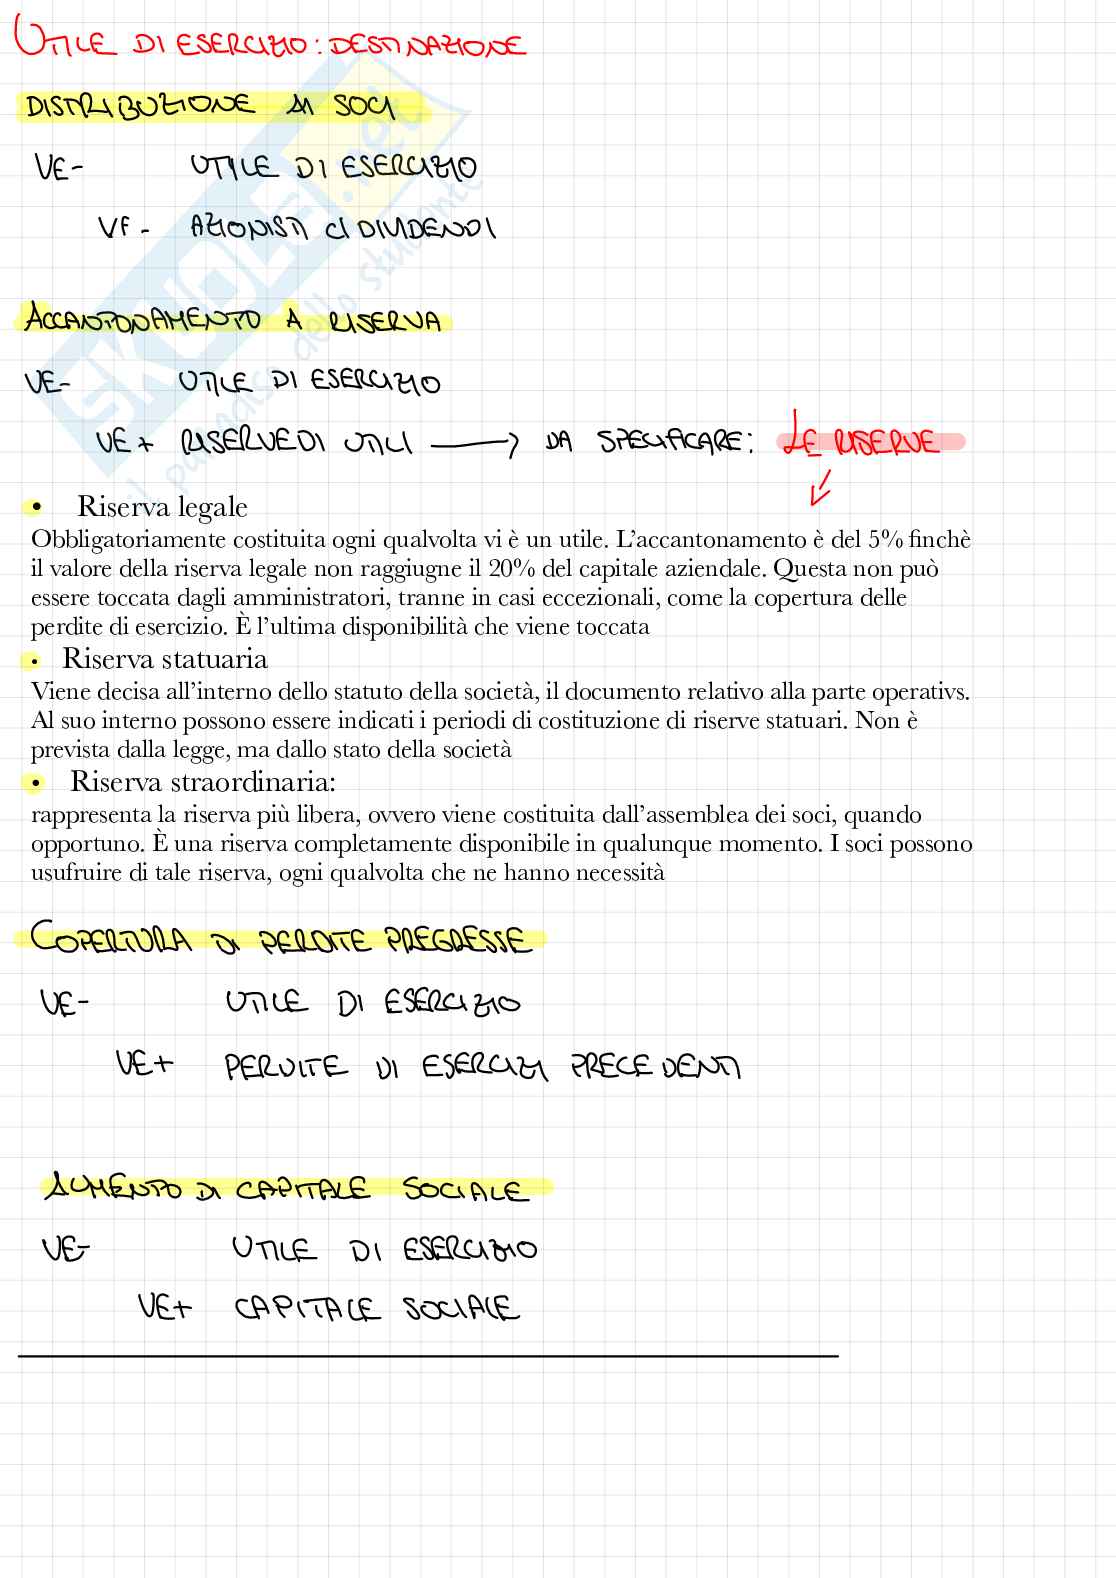 UTILE DI ESERCIZIO: DESTINAZIONE
DISTRIBUZIONE AI SOCI
VE- UTILE DI ESERCIZIO
VF- AZIONISTI C/DIVIDENDI
ACCANTONAMENTO A RISERVA
VE- UTILE DI ESERCIZIO
VE+ RISERVE DI UTILI → DA SPECIFICARE: LE RISERVE
• Riserva legale
Obbligatoriamente costituita ogni qualvolta vi è un utile. L’accantonamento è del 5% finchè
il valore della riserva legale non raggiugne il 20% del capitale aziendale. Questa non può
essere toccata dagli amministratori, tranne in casi eccezionali, come la copertura delle
perdite di esercizio. È l’ultima disponibilità che viene toccata
• Riserva statuaria
Viene decisa all’interno dello statuto della società, il documento relativo alla parte operativs.
Al suo interno possono essere indicati i periodi di costituzione di riserve statuari. Non è
prevista dalla legge, ma dallo stato della società
• Riserva straordinaria:
rappresenta la riserva più libera, ovvero viene costituita dall’assemblea dei soci, quando
opportuno. È una riserva completamente disponibile in qualunque momento. I soci possono
usufruire di tale riserva, ogni qualvolta che ne hanno necessità
COPERTURA DI PERDITE PREGRESSE
VE- UTILE DI ESERCIZIO
VE+ PERDITE DI ESERCIZI PRECEDENTI
AUMENTO DI CAPITALE SOCIALE
VE- UTILE DI ESERCIZIO
VE+ CAPITALE SOCIALE
SKUOLA.net
il paradiso dello studente